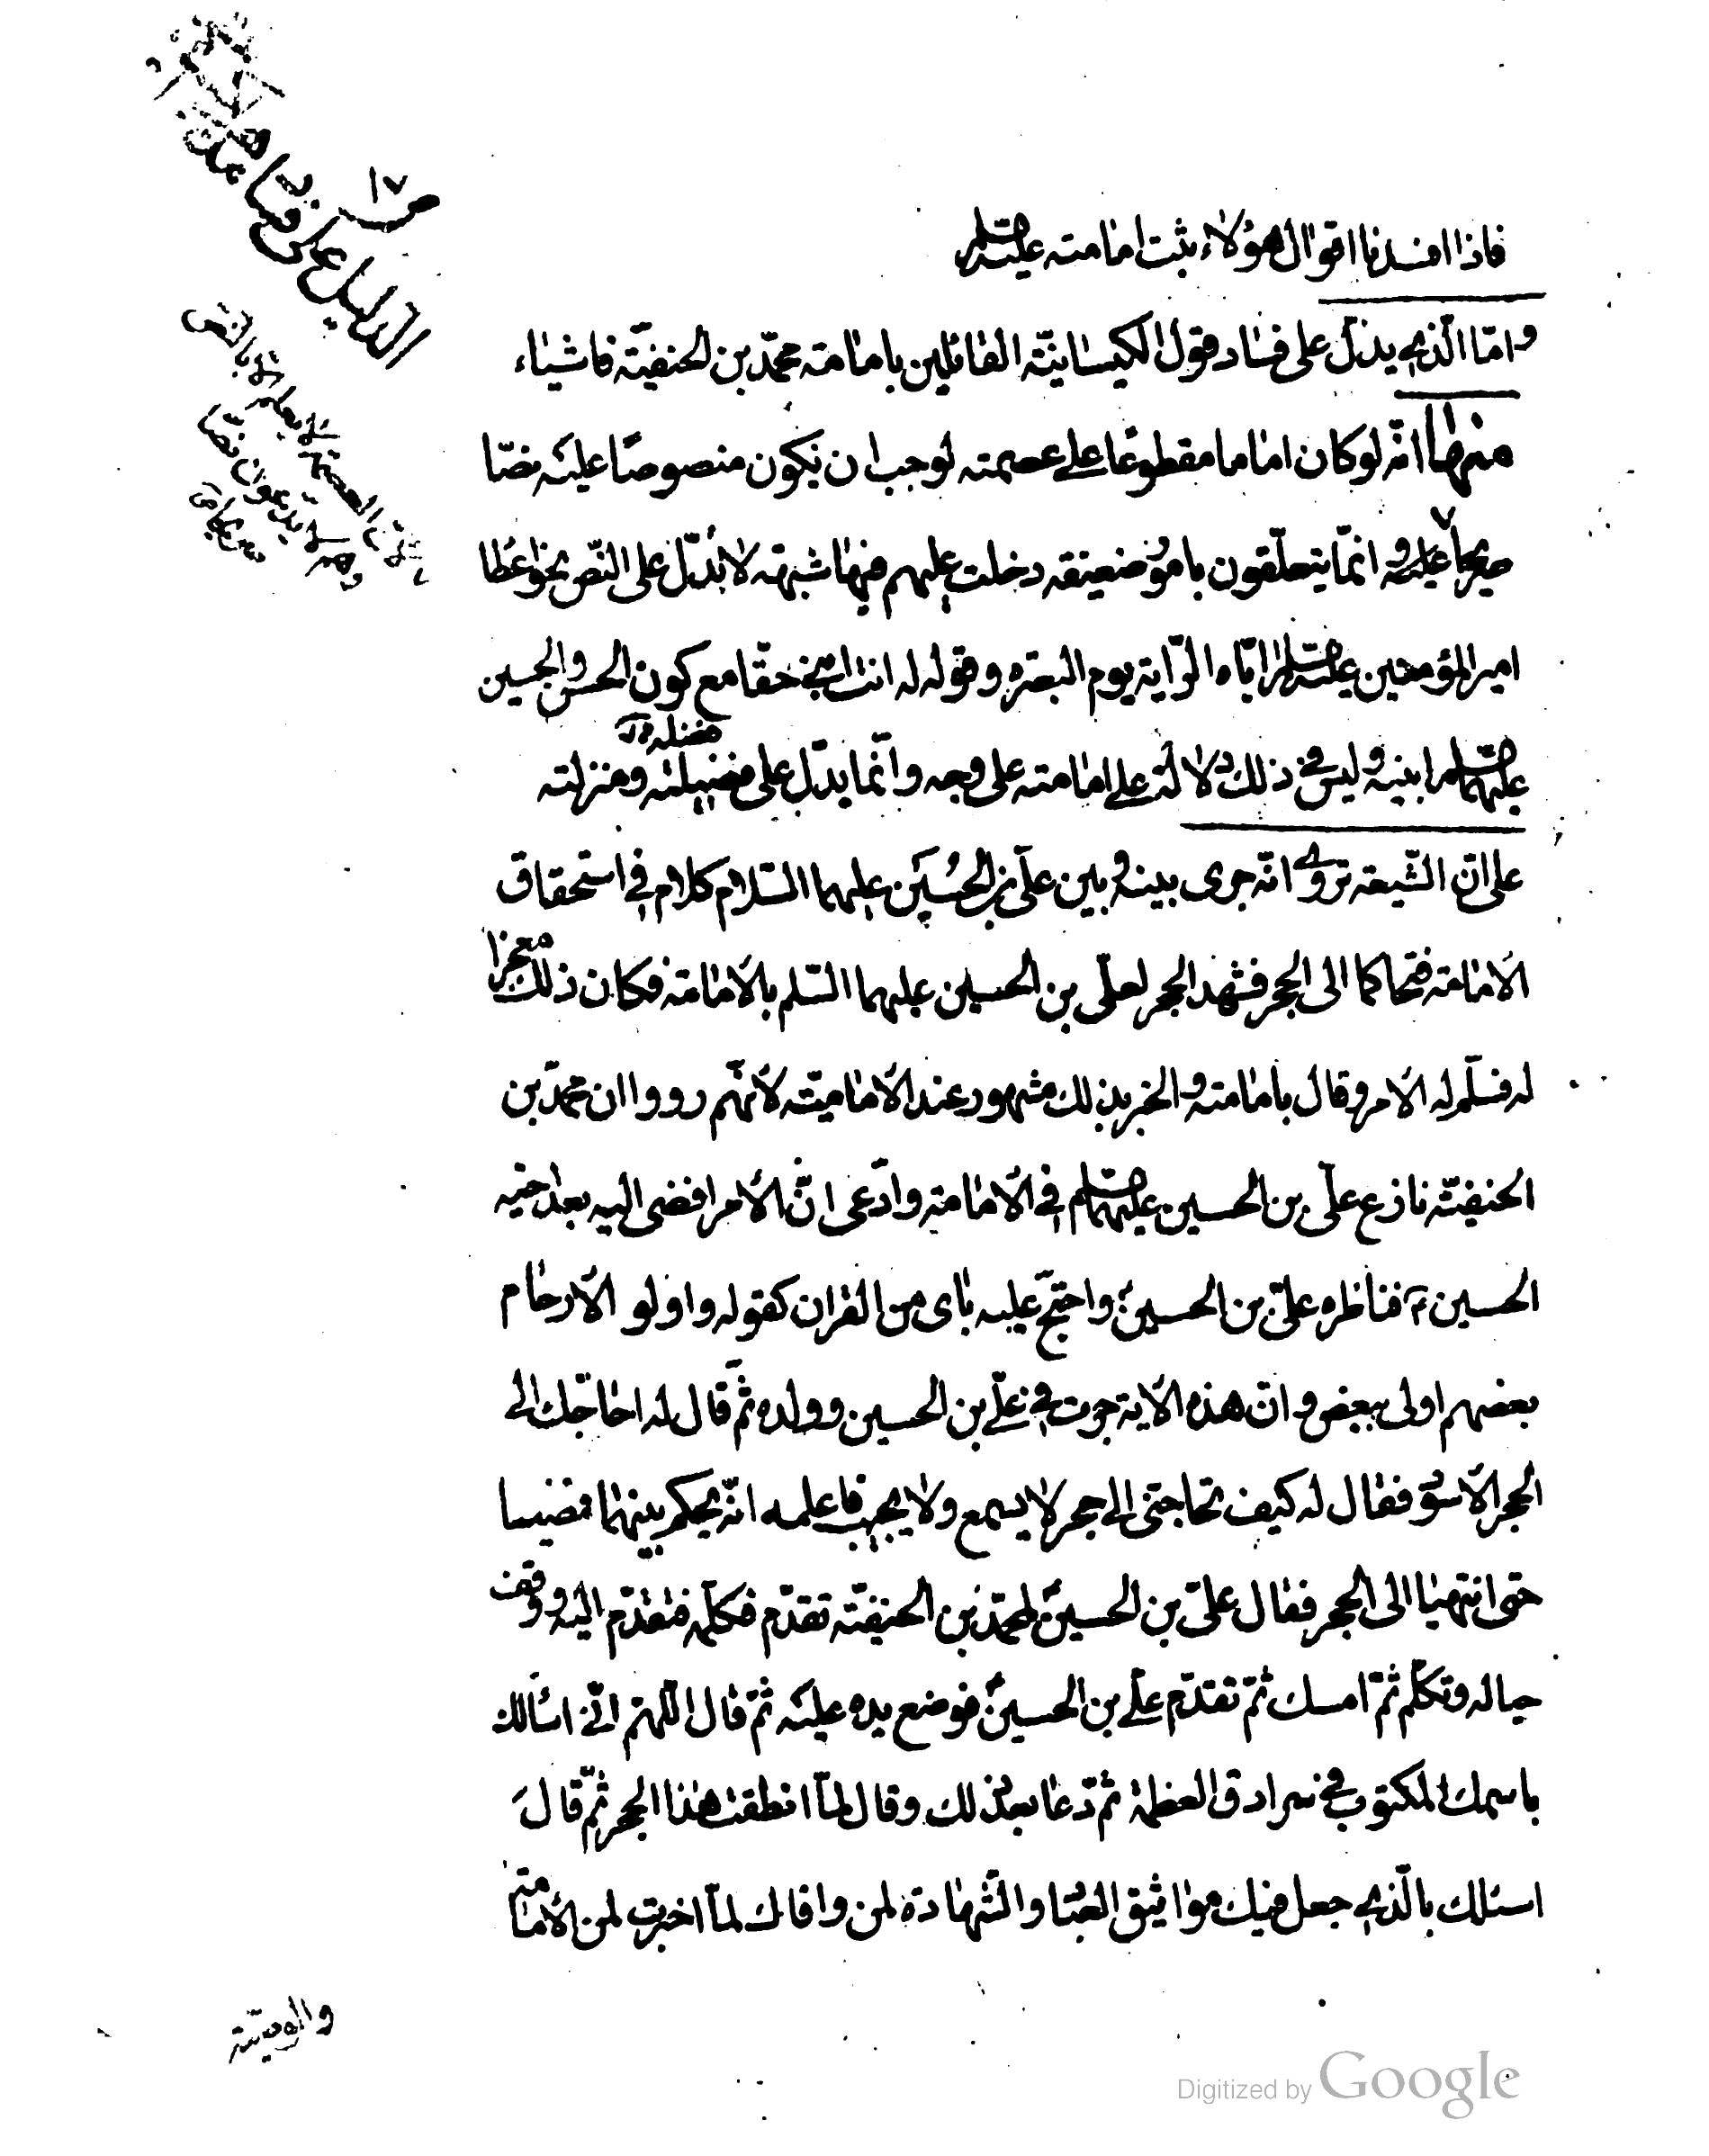 ١٧
الدليل على فساد
فاذا افسدنا اقوال هؤلاء ثبت امامته عليه السلم
وامّا الّذي يدلّ على فساد قول الكيسانيّة القائلين بامامة محمّد بن الحنفيّة فاشياء
منها انّه لو كان اماما مقطوعًا على عصمته لوجب ان يكون منصوصًا عليه نصّا
صريحًا عليه و انّما يتعلّقون بامور ضعيفة دخلت عليهم فيها شبهة لا يدلّ على النّص نحو اعطا
امير المؤمنين عليه السلم ايّاه الرّاية يوم البصرة وقوله له انت ابني حقّا مع كون الحسن والحسين
عليهما السلم ابنيه وليس في ذلك دلالة على امامته على وجه وانّما يدلّ على فضيلته ومنزلته
فضله
على انّ الشّيعة تروي انّه جرى بينه وبين علّي بن الحسين عليهما السّلام كلام في استحقاق
الامامة فتحاكما الى الحجر فشهد الحجر لعلّي بن الحسين عليهما السّلم بالامامة فكان ذلك معجزا
له فسلّم له الامر وقال بامامته والخبر بذلك مشهور عند الاماميّة لانّهم رووا ان محمّد بن
الحنفيّة نازع علّي بن الحسين عليهما السلم في الامامة وادّعى انّ الامر افضى اليه بعد اخيه
الحسين ع فناظره علّي بن الحسين ع واحتجّ عليه باى من القران كقوله واولو الارحام
بعضهم اولى ببعض وانّ هذه الاية جرت في علّي بن الحسين وولده ثمّ قال له احاجّك الى
الحجر الاسود فقال له كيف تحاجّني الى حجر لا يسمع ولا يجيب فاعلمه انّه يحكم بينهما فمضيا
حتى انتهيا الى الحجر فقال علّي بن الحسين ع لمحمّد بن الحنفيّة تقدّم فكلّمه فتقدّم اليه ووقف
حياله وتكلّم ثمّ امسك ثمّ تقدّم علّي بن الحسين ع فوضع يده عليه ثمّ قال اللّهمّ انّي اسألك
باسمك المكتوب في سرادق العظمة ثمّ دعا بعد ذلك وقال لمّا انطقت هذا الحجر ثمّ قال
اسئلك بالّذي جعل فيك مواثيق العباد والشّهادة لمن وافاك لمّا اخبرت لمن الامامة
والوصيّة
Digitized by Google